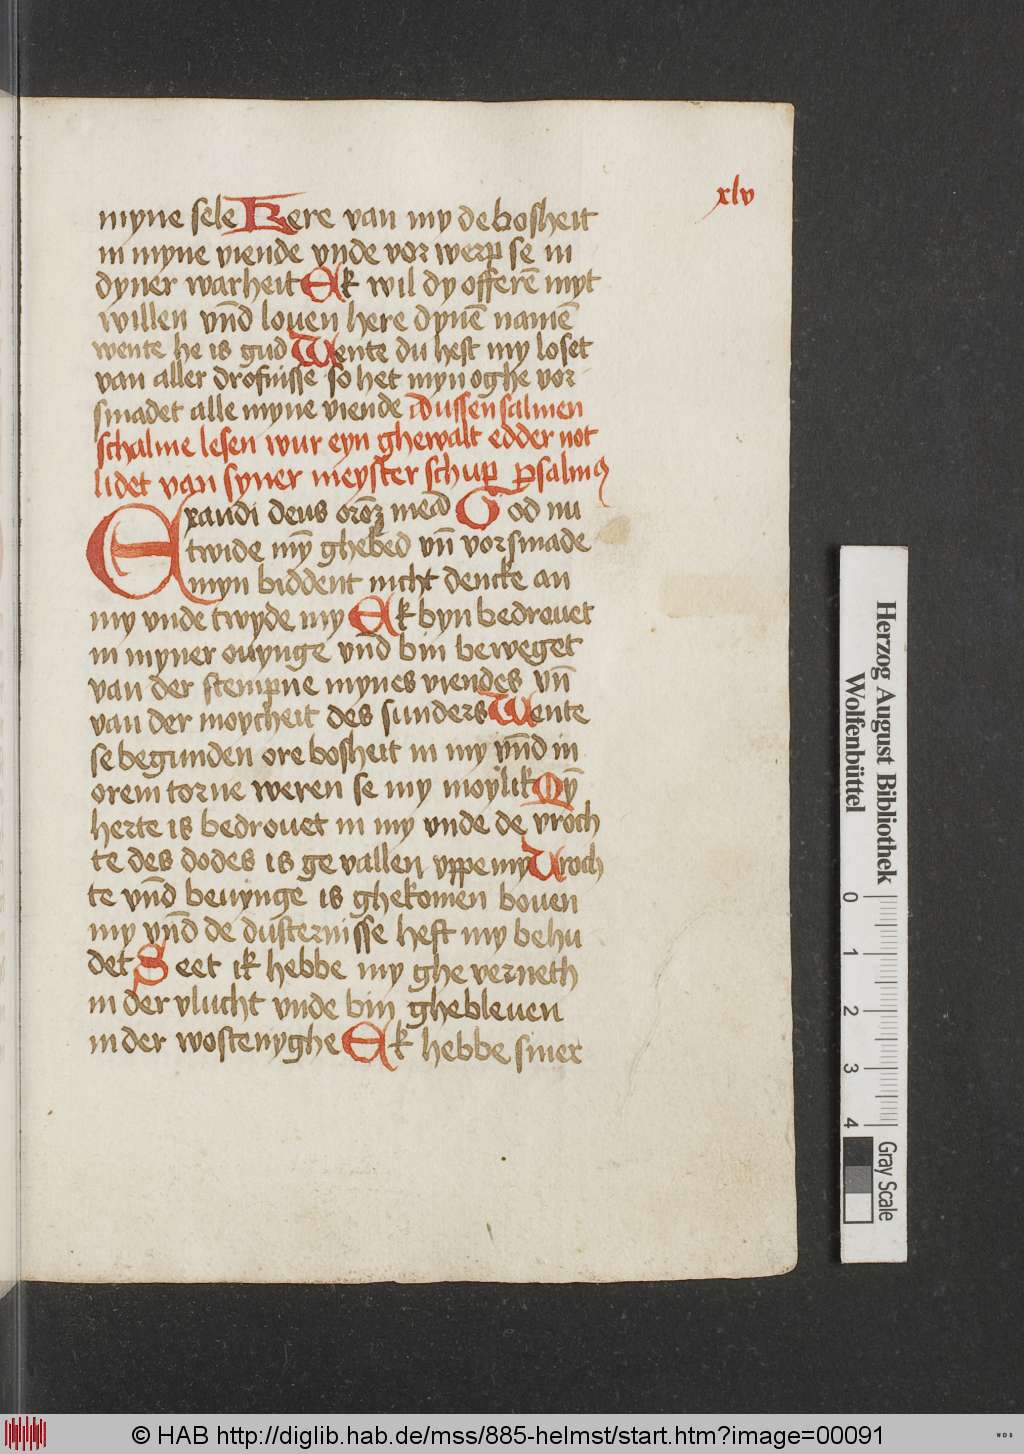 xlv
myne sele Kere van my de bosheit
in myne viende vnde vor werp se in
dyner warheit Ek wil dy offerē myt
willen vn̄d louen here dynē namē
wente he is gud Wente du hest my loset
van aller drofnisse so het myn oghe vor
smadet alle myne viende Dussen salmen
schalme lesen wur eyn ghewalt edder not
lidet van syner meyster schup Psalmꝯ
Exaudi deus oroēꝫ meā God nu
twide mȳ ghebed vn̄ vorsmade
myn biddent nicht dencke an
my vnde twyde my Ek byn bedrouet
in myner ouynge vn̄d bin beweget
van der stempne mynes viendes vn̄
van der moycheit des sunders Wente
se begunden ore bosheit in my vn̄d in
orem torne weren se my moylik Mȳ
herte is bedrouet in my vnde de vroch
te des dodes is ge vallen vppe my Vroch
te vn̄d beuynge is ghekomen bouen
my vn̄d de dusternisse heft my behu
det Seet ik hebbe my ghe verneth
in der vlucht vnde bin ghebleuen
in der wostenyghe Ek hebbe siner
Herzog August Bibliothek
Wolfenbüttel
0 1 2 3 4
Gray Scale
© HAB http://diglib.hab.de/mss/885-helmst/start.htm?image=00091
WDB